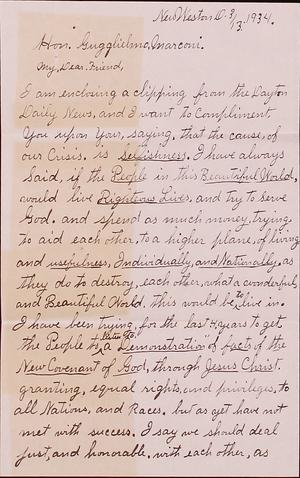 New Weston O. 3/13. 1934.
Hon. Gugglielmo, Marconi.
My, Dear. Friend,
I am enclosing a clipping from the Dayton
Daily News, and I want to Compliment,
You upon Your, saying, that the cause, of
our Crisis, is selfishness. I have always
said, if the People in this Beautiful World,
would live Righteous Lives, and try to serve
God. and spend as much money, trying,
to aid each other, to a higher plane, of living
and usefulness, Individually, and Nationally, as
they do to destroy, each other, what a wonderful,
and Beautiful World. this would, be live in.
I have been trying, for the last years to get
the People to listen to a "Demonstration" of facts of the
New Covenant of God, through Jesus Christ.
granting, equal rights, and privileges, to
all Nations, and Races. but as yet have not
met with success. I say we should deal
just, and honorable, with each other, as